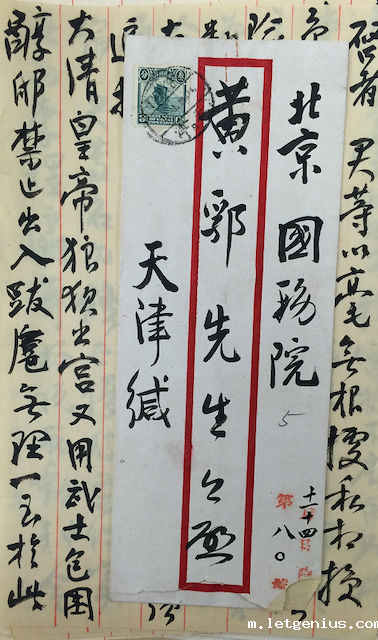 啓者 君等以毫無根據私相授
北京國務院
5
十一 十四
第八〇號
黃郛先生公啟
天津緘
大清皇帝狼狽出宮又用武士包圍
醇邸禁止出入跋扈無理一至於此
m.letgenius.com